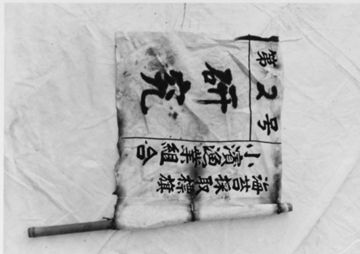 第2号
研究
小濱漁業組合
海苔採取標旗